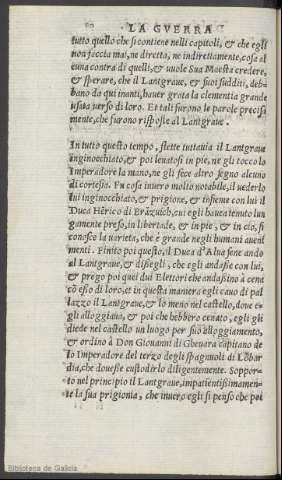 LA GVERRA
tutto quello che si contiene nelli capitoli, & che egli
non faccia mai, ne diretta, ne indirettamente, cosa al
cuna contra di quelli, & uuole Sua Maesta credere,
& sperare, che il Lantgraue, & suoi sudditi, deb-
bano da qui inanti, hauer grata la clementia grande
usata uerso di loro. Et tali furono le parole precisa
mente, che furono risposte al Lantgraue.
In tutto questo tempo, stette tuttauia il Lantgraue
inginocchiato, & poi leuatosi in pie, ne gli tocco lo
Imperadore la mano, ne gli fece altro segno alcuno
di cortesia. Fu cosa inuero molto notabile, il uederlo
lui inginocchiato, & prigione, & insieme con lui il
Duca Hērico di Brāzuich, cui egli hauea tenuto lun
gamente preso, in libertade, & in pie, & in cio, si
conosce la uarieta, che è grande negli humani aueni
menti. Finito poi questo, il Duca d'Alua sene ando
al Lantgraue, & dissegli, che egli andasse con lui,
& prego poi quei dui Elettori che andassino à cena
cō esso di loro, et in questa maniera egli cauo di pal
lazzo il Lantgraue, & lo meno nel castello, doue e-
gli alloggiaua, & poi che hebbero cenato, egli gli
diede nel castello un luogo per suo alloggiamento,
& ordino à Don Giouanni di Gheuara capitano de
lo Imperadore del terzo degli spagnuoli di Lōbar
dia, che douesse custodirlo diligentemente. Soppor-
to nel principio il Lantgraue, impatientissimamen-
te la sua prigionia, che inuero egli si penso che poi
Biblioteca de Galicia